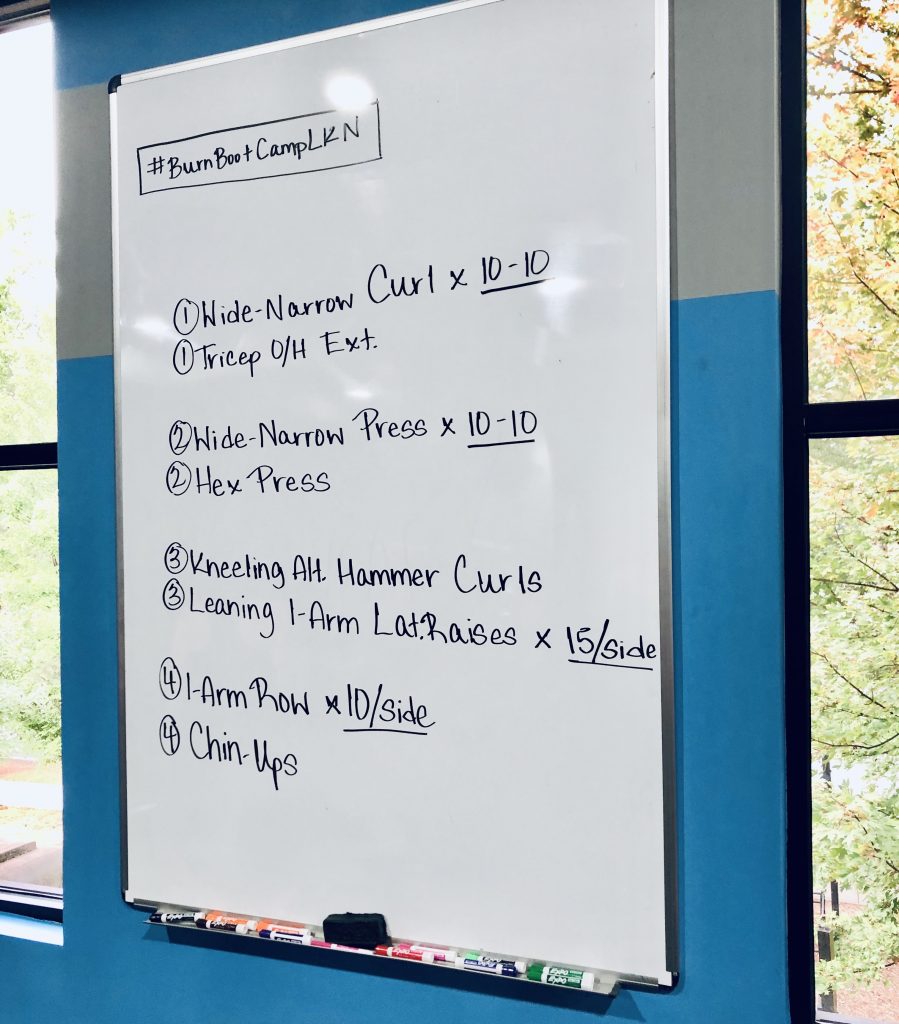 #BurnBootCampLKN
① Wide-Narrow Curl x 10-10
① Tricep O/H Ext.
② Wide-Narrow Press x 10-10
② Hex Press
③ Kneeling Alt. Hammer Curls
③ Leaning 1-Arm Lat. Raises x 15/side
④ 1-Arm Row x 10/side
④ Chin-Ups
EXPO